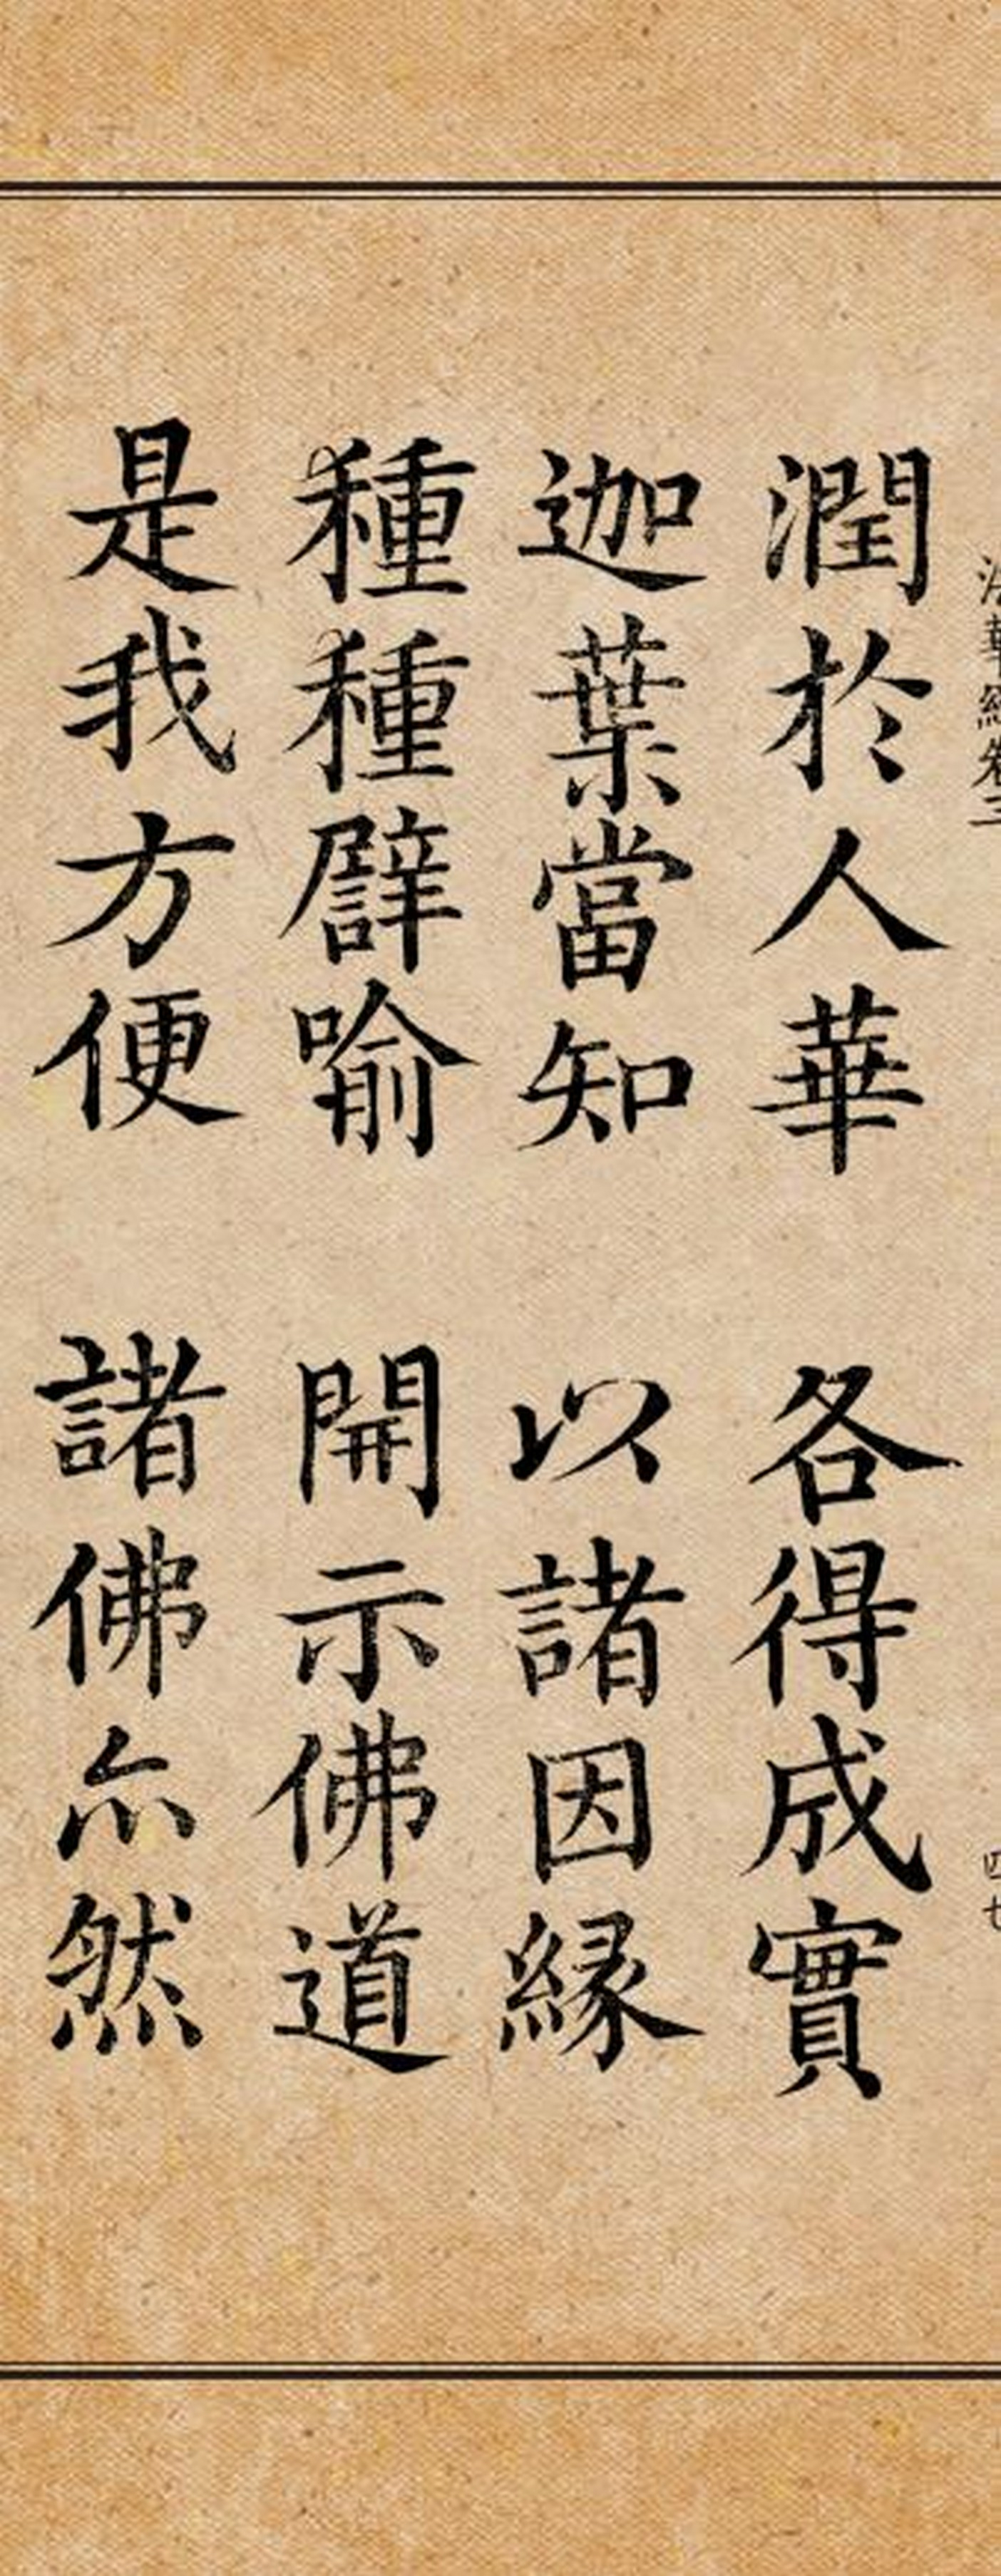 法華經卷三 四七
潤於人華 各得成實
迦葉當知 以諸因緣
種種譬喻 開示佛道
是我方便 諸佛亦然